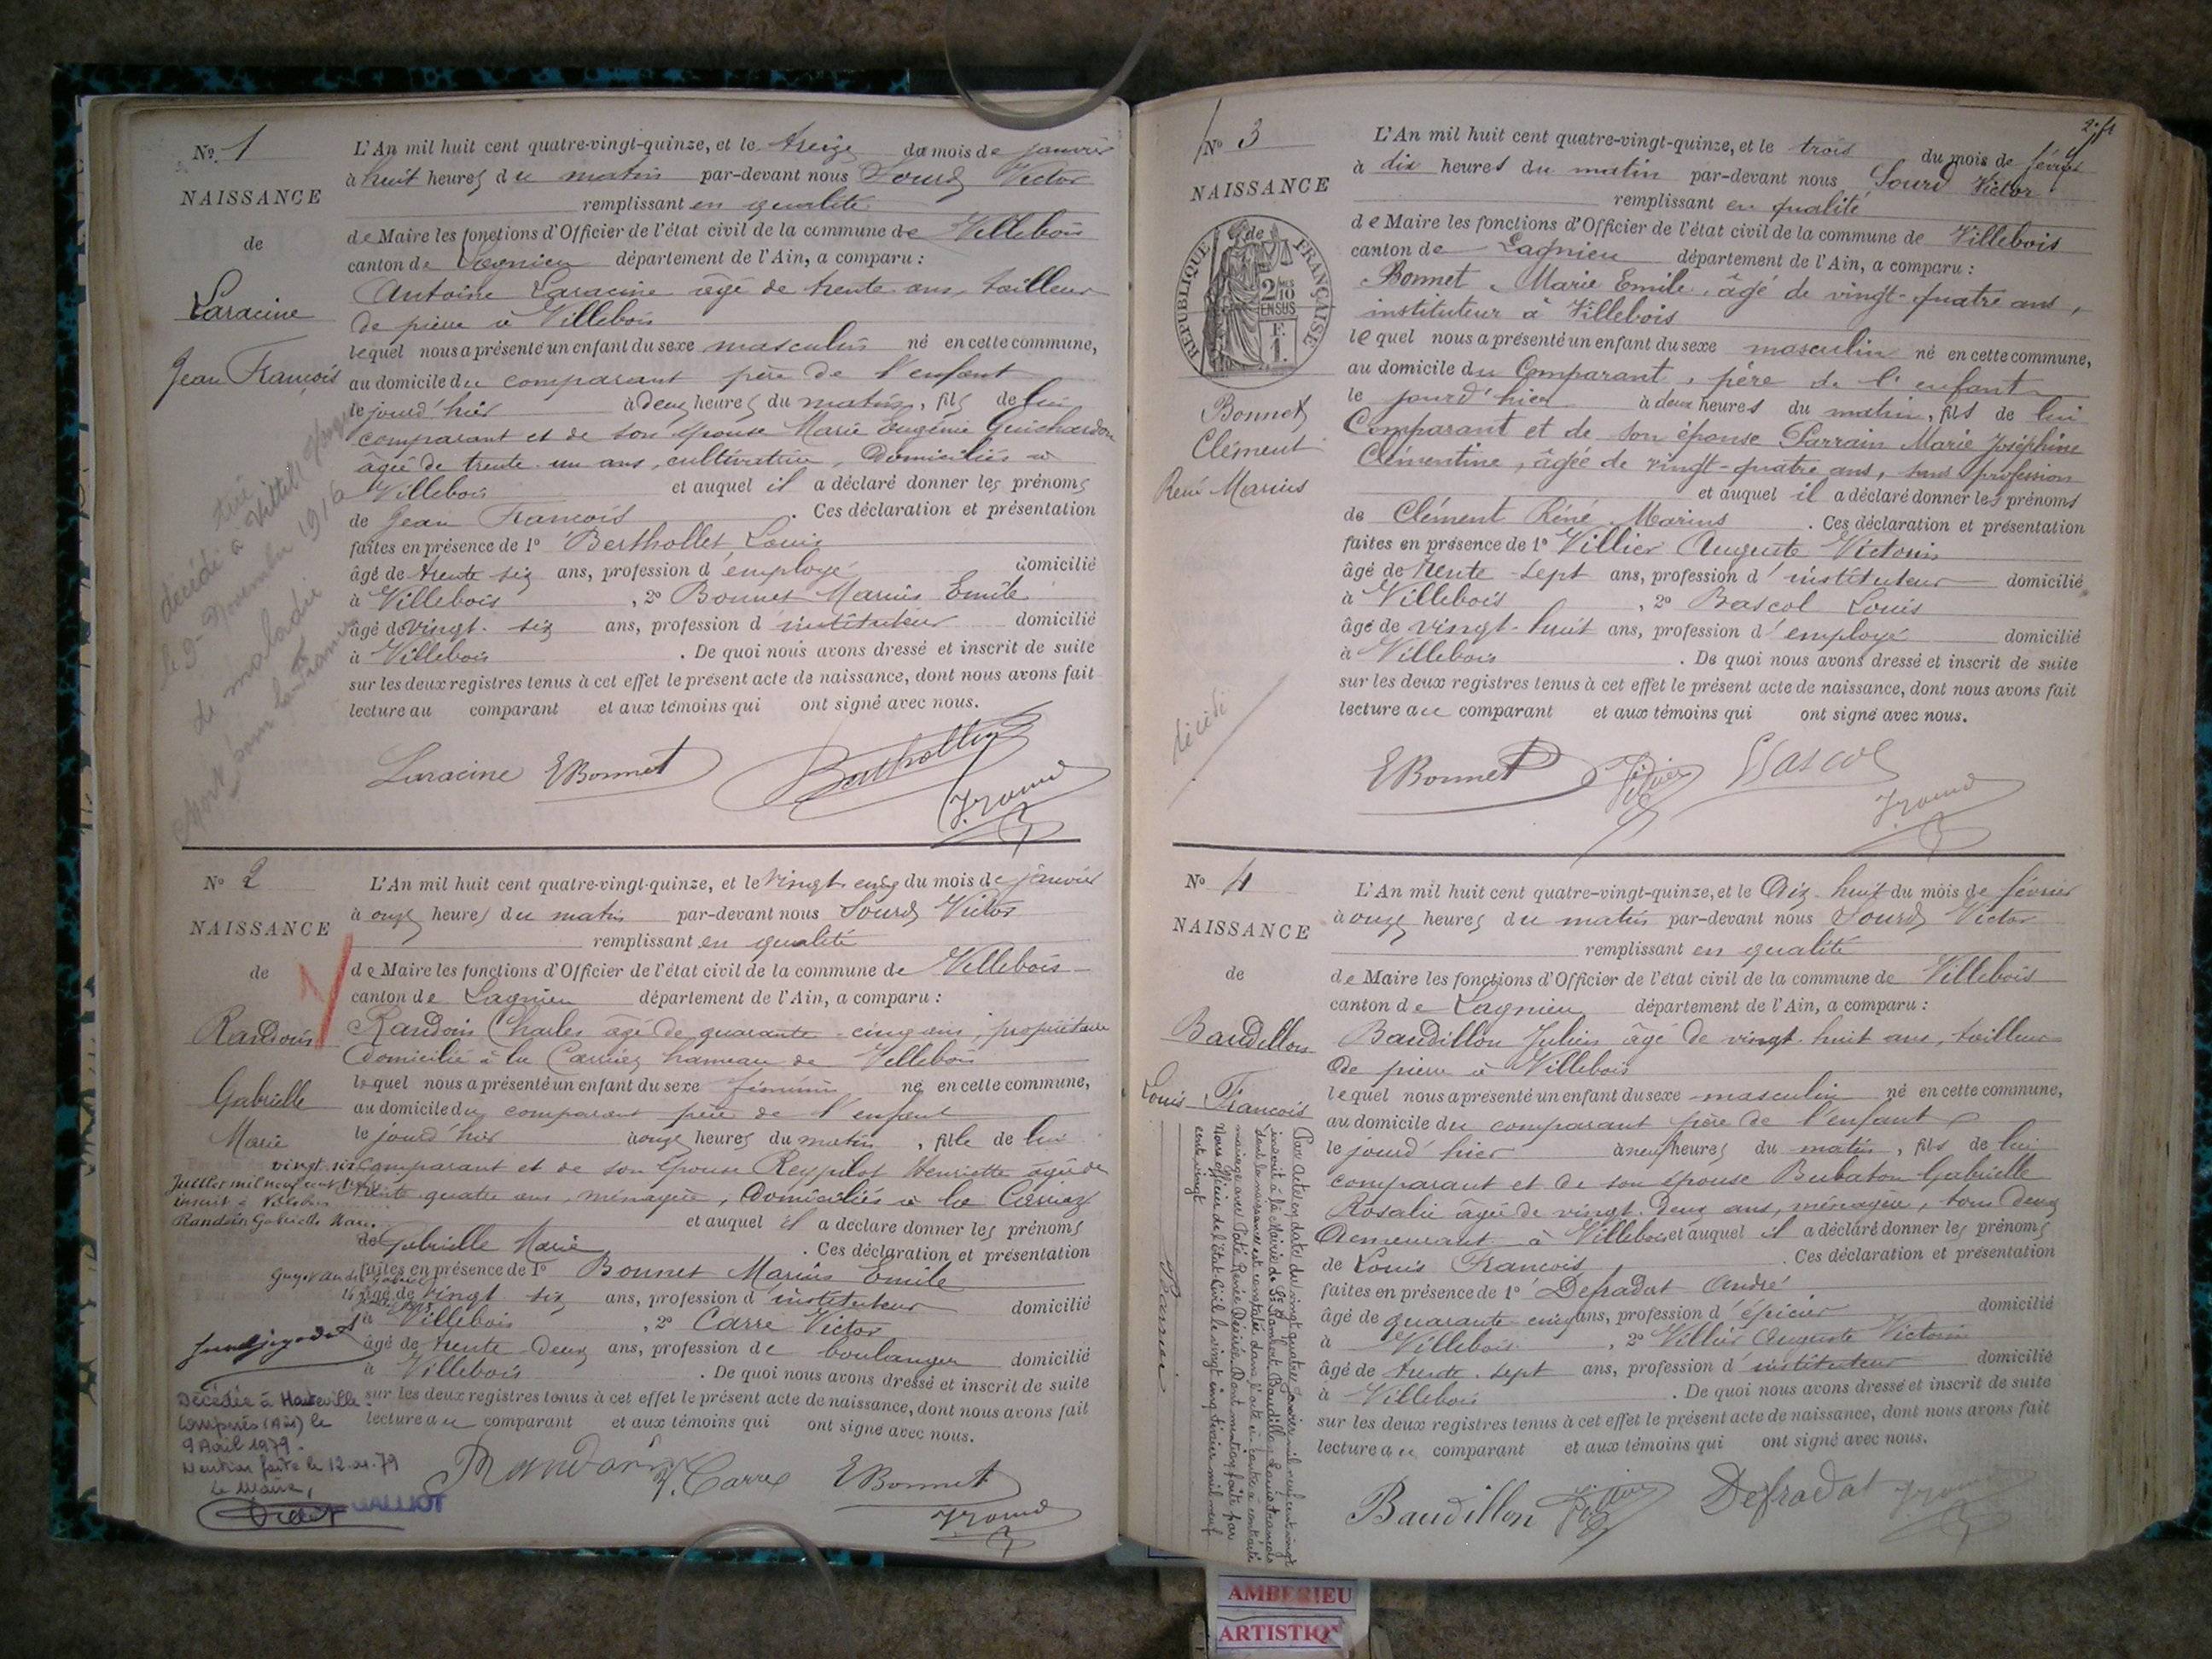 Nº 1
NAISSANCE
de
Laracine
Jean François
décédé à Vittel
le 9 Novembre 1916
de maladie
Mort pour la France
L'An mil huit cent quatre-vingt-quinze, et le treize du mois de janvier
à huit heures du matin par-devant nous Sourd Victor
remplissant en qualité
de Maire les fonctions d'Officier de l'état civil de la commune de Villebois
canton de Lagnieu département de l'Ain, a comparu :
Antoine Laracine âgé de trente ans, tailleur
de pierre à Villebois
lequel nous a présenté un enfant du sexe masculin né en cette commune,
au domicile du comparant père de l'enfant
le jourd'hier à deux heures du matin, fils de lui
comparant et de son épouse Marie Eugénie Guichardon
âgée de trente un ans, cultivatrice, domiciliés à
Villebois et auquel il a déclaré donner les prénoms
de Jean François . Ces déclaration et présentation
faites en présence de 1º Berthollet Louis
âgé de trente six ans, profession d'employé domicilié
à Villebois , 2º Bonnet Marius Emile
âgé de vingt-six ans, profession d'instituteur domicilié
à Villebois . De quoi nous avons dressé et inscrit de suite
sur les deux registres tenus à cet effet le présent acte de naissance, dont nous avons fait
lecture au comparant et aux témoins qui ont signé avec nous.
Laracine EBonnet Berthollet
Nº 2
NAISSANCE
de
Randoin
Gabrielle
Marie
L'An mil huit cent quatre-vingt-quinze, et le vingt cinq du mois de janvier
à onze heures du matin par-devant nous Sourd Victor
remplissant en qualité
de Maire les fonctions d'Officier de l'état civil de la commune de Villebois
canton de Lagnieu département de l'Ain, a comparu :
Randoin Charles âgé de quarante-cinq ans, propriétaire
domicilié à la hameau de Villebois
lequel nous a présenté un enfant du sexe féminin né en cette commune,
au domicile du comparant père de l'enfant
le jourd'hier à onze heures du matin , fille de lui
comparant et de son épouse Henriette âgée de
trente quatre ans, ménagère, domiciliés à la
et auquel il a déclaré donner les prénoms
de Gabrielle Marie . Ces déclaration et présentation
faites en présence de 1º Bonnet Marius Emile
âgé de vingt six ans, profession d'instituteur domicilié
à Villebois , 2º Carre Victor
âgé de trente deux ans, profession de boulanger domicilié
à Villebois . De quoi nous avons dressé et inscrit de suite
sur les deux registres tenus à cet effet le présent acte de naissance, dont nous avons fait
lecture au comparant et aux témoins qui ont signé avec nous.
vingt six
Juillet mil neuf cent
Randoin Gabrielle Marie
Décédée à Hauteville
Lompnès (Ain) le
9 Avril 1979.
Mention faite le 12.04.79
Le Maire,
GALLIOT
Randoin V. Carre EBonnet
2º ft
Nº 3
NAISSANCE
de
RÉPUBLIQUE FRANÇAISE
2/10
EN SUS
F.
1.
Bonnet
Clément
René Marius
décédé
L'An mil huit cent quatre-vingt-quinze, et le trois du mois de février
à dix heures du matin par-devant nous Sourd Victor
remplissant en qualité
de Maire les fonctions d'Officier de l'état civil de la commune de Villebois
canton de Lagnieu département de l'Ain, a comparu :
Bonnet Marie Emile, âgé de vingt-quatre ans,
instituteur à Villebois
lequel nous a présenté un enfant du sexe masculin né en cette commune,
au domicile du Comparant, père de l'enfant
le jourd'hier à deux heures du matin, fils de lui
Comparant et de son épouse Parrain Marie Joséphine
Clémentine, âgée de vingt-quatre ans, sans profession
et auquel il a déclaré donner les prénoms
de Clément Réné Marius . Ces déclaration et présentation
faites en présence de 1º Villier Auguste Victorin
âgé de trente-sept ans, profession d'instituteur domicilié
à Villebois , 2º Bascol Louis
âgé de vingt-huit ans, profession d'employé domicilié
à Villebois . De quoi nous avons dressé et inscrit de suite
sur les deux registres tenus à cet effet le présent acte de naissance, dont nous avons fait
lecture au comparant et aux témoins qui ont signé avec nous.
EBonnet Villier Bascol
Nº 4
NAISSANCE
de
Baudillon
Louis François
L'An mil huit cent quatre-vingt-quinze, et le dix huit du mois de février
à onze heures du matin par-devant nous Sourd Victor
remplissant en qualité
de Maire les fonctions d'Officier de l'état civil de la commune de Villebois
canton de Lagnieu département de l'Ain, a comparu :
Baudillon Julien âgé de vingt-huit ans, tailleur
de pierre à Villebois
lequel nous a présenté un enfant du sexe masculin né en cette commune,
au domicile du comparant père de l'enfant
le jourd'hier à neuf heures du matin, fils de lui
comparant et de son épouse Bubaton Gabrielle
Rosalie âgée de vingt-deux ans, ménagère, tous deux
demeurant à Villebois et auquel il a déclaré donner les prénoms
de Louis François . Ces déclaration et présentation
faites en présence de 1º Defradat André
âgé de quarante cinq ans, profession d'épicier domicilié
à Villebois , 2º Villier Auguste Victorin
âgé de trente-sept ans, profession d'instituteur domicilié
à Villebois . De quoi nous avons dressé et inscrit de suite
sur les deux registres tenus à cet effet le présent acte de naissance, dont nous avons fait
lecture au comparant et aux témoins qui ont signé avec nous.
Par acte en date du vingt quatre Janvier mil neuf cent vingt
inscrit à la Mairie de St Rambert, Baudillon Louis François
dont la naissance est constatée dans l'acte ci-contre a contracté
mariage avec Renée Désirée. Dont mention faite par
Nous officier de l'Etat-Civil le vingt cinq février mil neuf
cent vingt
Baudillon Villier Defradat
AMBERIEU
ARTISTIQ